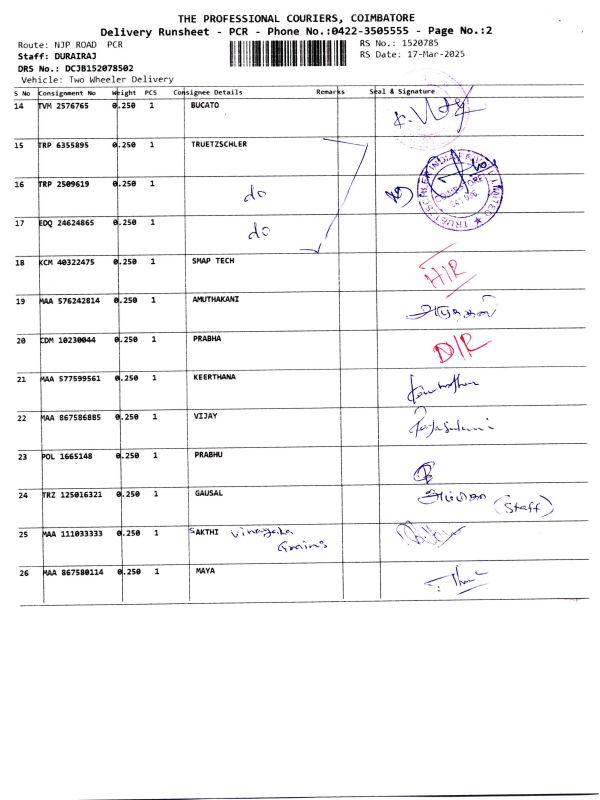 THE PROFESSIONAL COURIERS, COIMBATORE
Delivery Runsheet - PCR - Phone No.:0422-3505555 - Page No.:2
Route: NJP ROAD PCR
RS No.: 1520785
Staff: DURAIRAJ
RS Date: 17-Mar-2025
DRS No.: DCJB152078502
Vehicle: Two Wheeler Delivery
S No Consignment No Weight PCS Consignee Details Remarks Seal & Signature
14 TVM 2576765 0.250 1 BUCATO
15 TRP 6355895 0.250 1 TRUETZSCHLER
16 TRP 2509619 0.250 1 do
17 EDQ 24624865 0.250 1 do
18 KCM 40322475 0.250 1 SMAP TECH H/R
19 MAA 576242814 0.250 1 AMUTHAKANI
20 CDM 10230044 0.250 1 PRABHA D/R
21 MAA 577599561 0.250 1 KEERTHANA
22 MAA 867586885 0.250 1 VIJAY
23 POL 1665148 0.250 1 PRABHU
24 TRZ 125016321 0.250 1 GAUSAL (Staff)
25 MAA 111033333 0.250 1 SAKTHI Vinayaka
Grains
26 MAA 867580114 0.250 1 MAYA